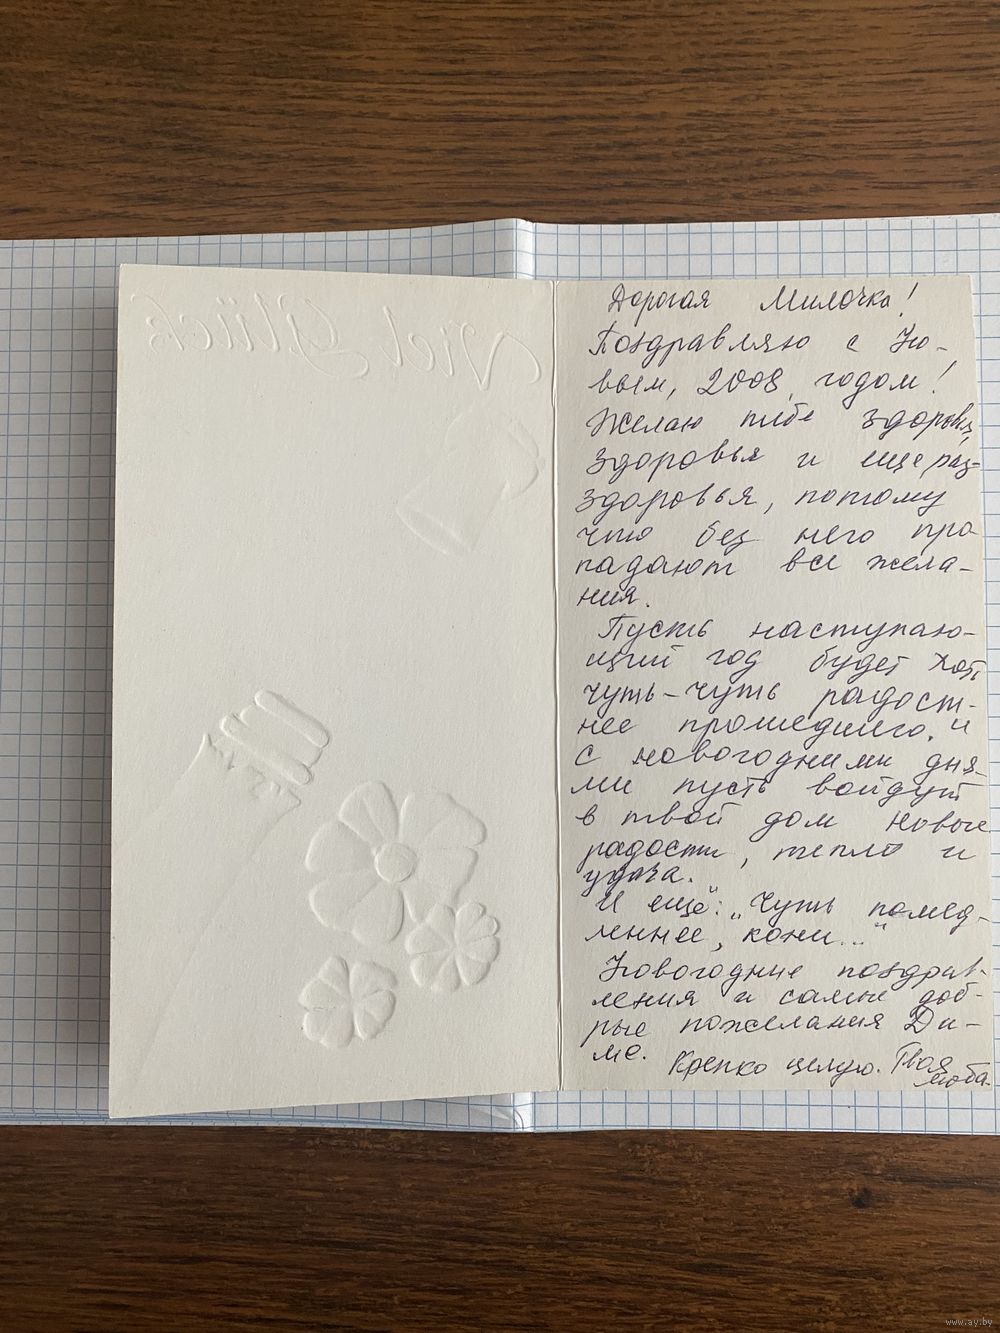 Viel Glück
Дорогая Милочка!
Поздравляю с Но-
вым, 2008, годом!
Желаю тебе здоровья,
здоровья и еще раз-
здоровья, потому
что без него про
падают все жела-
ния.
Пусть наступаю-
щий год будет хоть
чуть-чуть радост-
нее прошедшего. И
с новогодними дня-
ми пусть войдут
в твой дом новые
радости, тепло и
удача.
И ещё: „Чуть помед-
леннее, кони..."
Новогодние поздрав-
ления и самые доб-
рые пожелания Ди-
ме.
Крепко целую. Твоя
www.ay.by